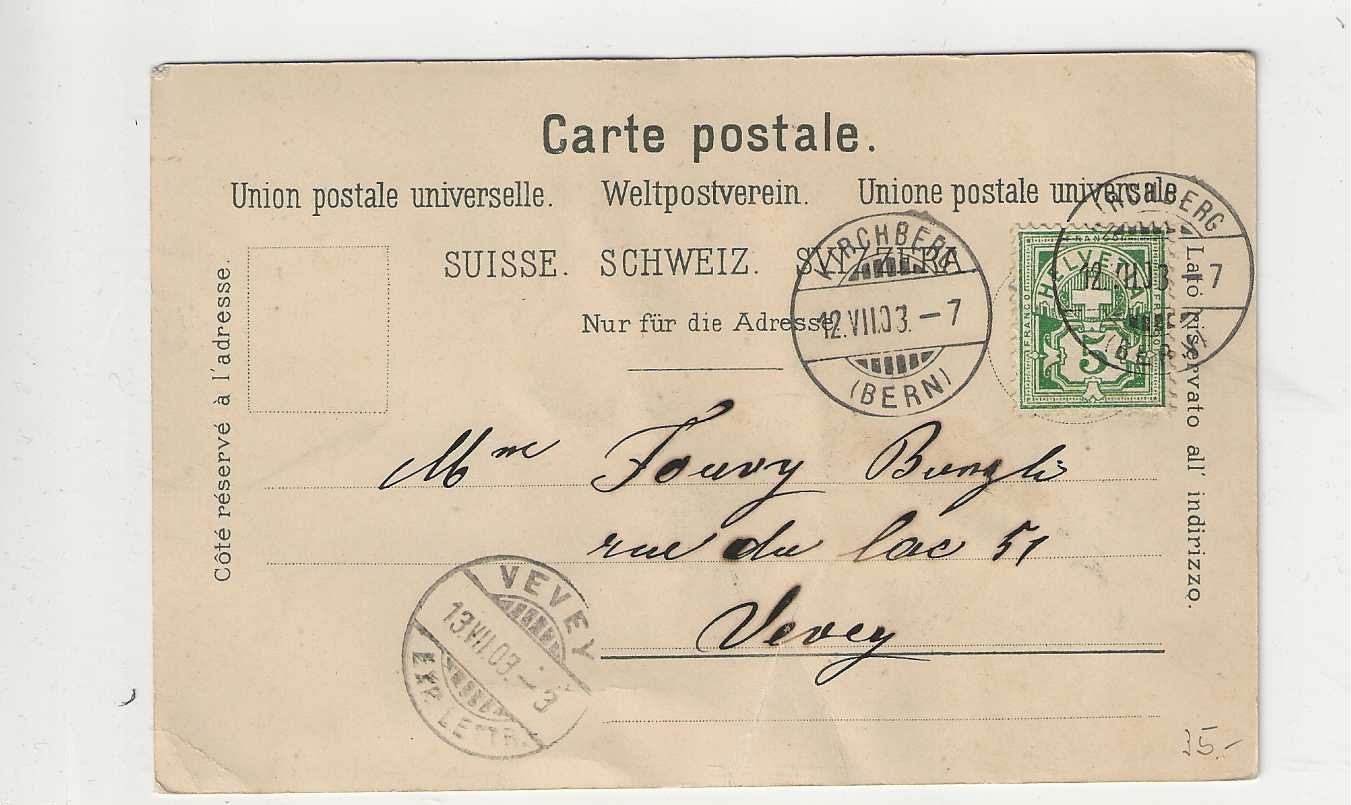 Carte postale.
Union postale universelle. Weltpostverein. Unione postale universale
SUISSE. SCHWEIZ. SVIZZERA
Nur für die Adresse.
Côté réservé à l'adresse.
Lato riservato all' indirizzo.
KIRCHBERG
12.VII.03.-7
(BERN)
KIRCHBERG
12.VII.03.-7
(BERN)
FRANCO
HELVETIA
FRANCO
FRANCO
5
Mme Jouvy
rue du lac 51
Vevey
VEVEY
13.VII.03.-3
EXP. LETTR.